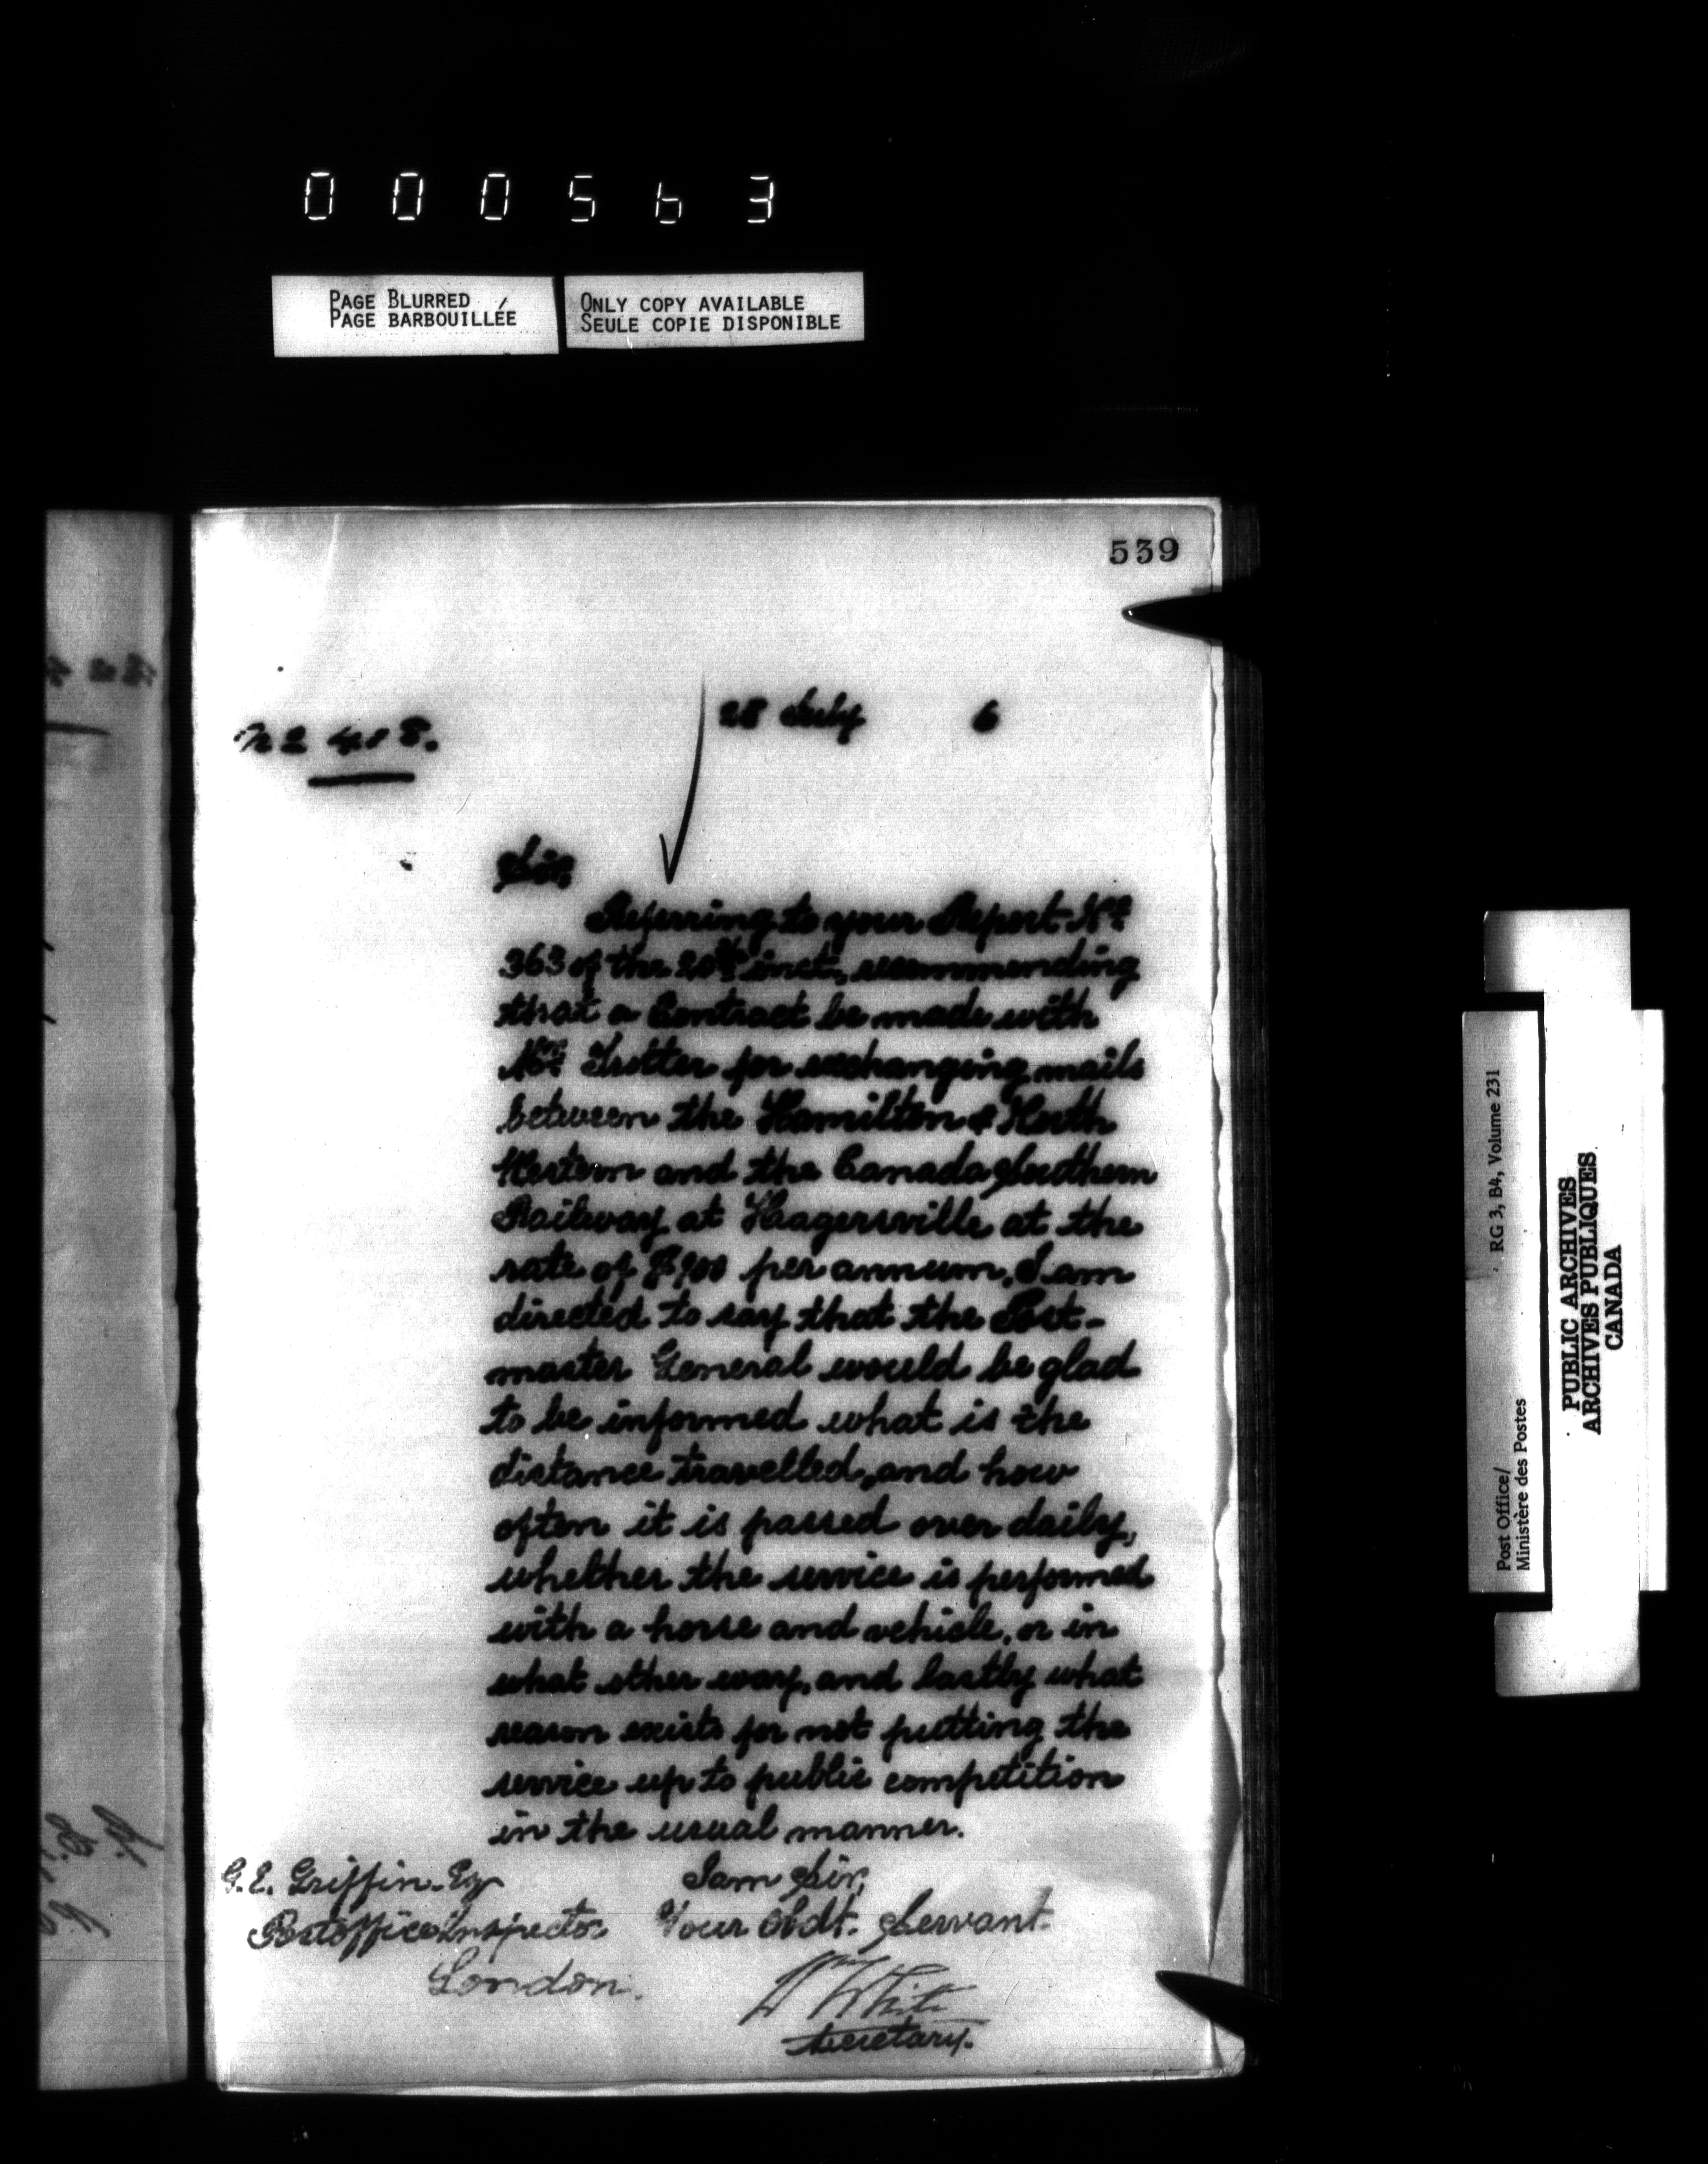 000563
PAGE BLURRED
PAGE BARBOUILLÉE
ONLY COPY AVAILABLE
SEULE COPIE DISPONIBLE
539
28 July 6
Sir,
Referring to your Report No
363 of the 20th inst., recommending
that a Contract be made with
Mr. Trotter for exchanging mails
between the Hamilton & North
Western and the Canada Southern
Railway at Haagersville at the
rate of $100 per annum, I am
directed to say that the Post-
master General would be glad
to be informed what is the
distance travelled, and how
often it is passed over daily,
whether the service is performed
with a horse and vehicle, or in
what other way, and lastly what
reason exists for not putting the
service up to public competition
in the usual manner.
I am Sir,
Your Obdt. Servant
White
Secretary.
G. E. Griffin Esq
Post office Inspector
London.
Post Office/
Ministère des Postes
RG 3, B4, Volume 231
PUBLIC ARCHIVES
ARCHIVES PUBLIQUES
CANADA